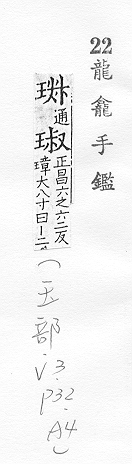 22
龍龕手鑑
通
琡
正昌六之六二反
璋大八寸曰丨二
(玉部.v3.
p32.
A4)